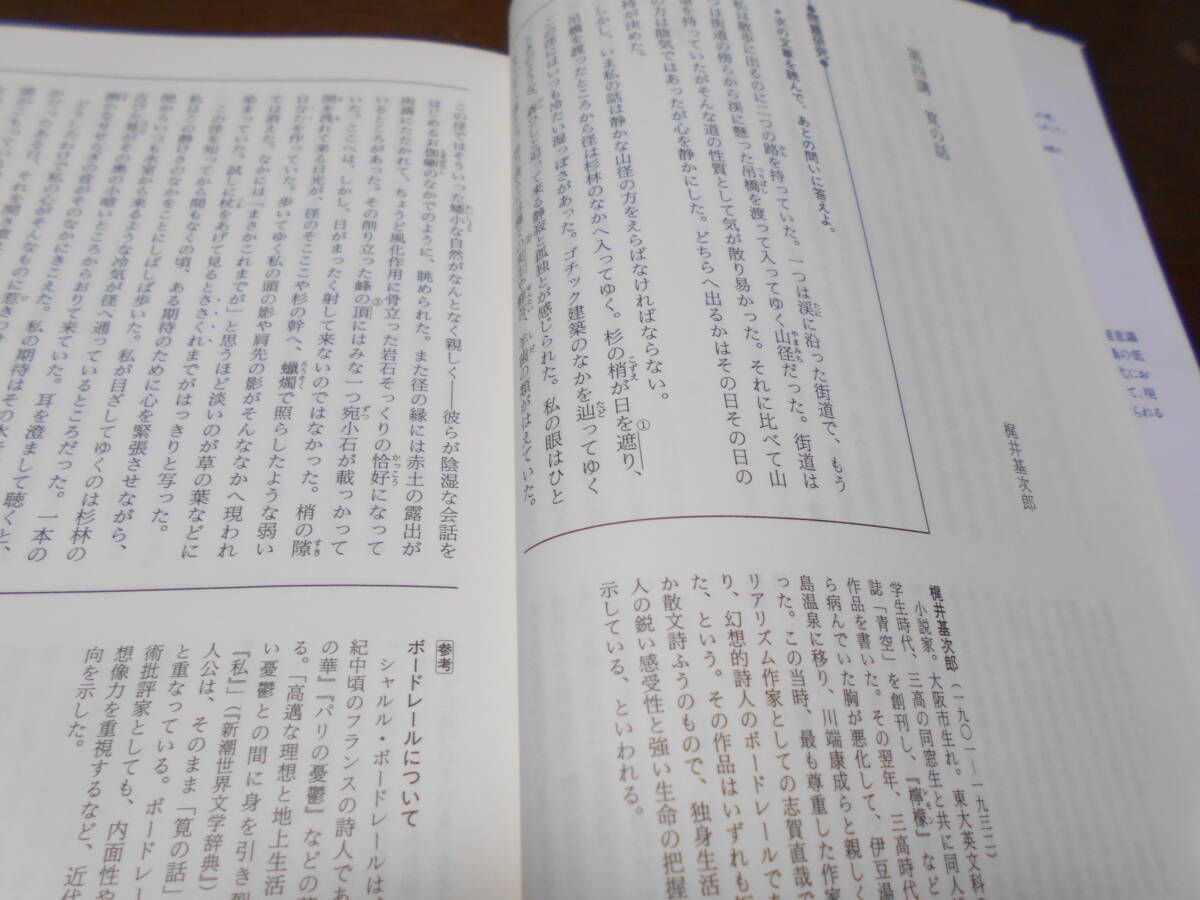 第四講　筧の話
梶井基次郎
次の文章を読んで、あとの問いに答えよ。
私は散歩に出るのに二つの路を持っていた。一つは渓に沿った街道で、もう
つは街道の傍らから渓に懸った吊橋を渡って入ってゆく山径だった。街道は
を持っていたがそんな道の性質として気が散り易かった。それに比べて山
の方は陰気ではあったが心を静かにした。どちらへ出るかはその日その日の
持が決めた。
しかし、いま私の話は静かな山径の方をえらばなければならない。
吊橋を渡ったところから径は杉林のなかへ入ってゆく。杉の梢が日を遮り、①
この径にはいつも冷たい湿っぽさがあった。ゴチック建築のなかを辿ってゆく
ときのような、ひしひしと迫って来る静寂と孤独とが感じられた。私の眼はひと
の類がはえていた。
梶井基次郎（一九〇一―一九三二）
小説家。大阪市生れ。東大英文科
学生時代、三高の同窓生と共に同人
誌「青空」を創刊し、『檸檬』など
作品を書いた。その翌年、三高時代
ら病んでいた胸が悪化して、伊豆湯
島温泉に移り、川端康成らと親しく
った。この当時、最も尊重した作家
リアリズム作家としての志賀直哉で
り、幻想的詩人のボードレールであ
た、という。その作品はいずれも短
か散文詩ふうのもので、独身生活
人の鋭い感受性と強い生命の把握
示している、といわれる。
この径ではそういった矮小な自然がなんとなく親しく――彼らが陰湿な会話を
はじめるお伽噺のなかでのように、眺められた。また径の縁には赤土の露出が
雨滴にたたかれて、ちょうど風化作用に骨立った岩石そっくりの恰好になって
いるところがあった。その削り立った峰の頂にはみな一つ宛小石が載っかって③
いた。ここへは、しかし、日がまったく射して来ないのではなかった。梢の隙
間を洩れて来る日光が、径のそこここや杉の幹へ、蠟燭で照らしたような弱い
日なたを作っていた。歩いてゆく私の頭の影や肩先の影がそんななかへ現われ
ては消えた。なかには「まさかこれまでが」と思うほど淡いのが草の葉などに
染まっていた。試しに杖をあげて見るとささくれまでがはっきりと写った。
この径を知ってから間もなくの頃、ある期待のために心を緊張させながら、
私はこの静けさのなかをことにしばしば歩いた。私が目ざしてゆくのは杉林の
間からいつも氷室から来るような冷気が径へ通っているところだった。一本の
古びた筧がその奥の小暗いところからおりて来ていた。耳を澄まして聴くと、
幽かなせせらぎの音がそのなかにきこえた。私の期待はその水
参考
ボードレールについて
シャルル・ボードレールは、
紀中頃のフランスの詩人であ
の華』『パリの憂鬱』などの
る。「高邁な理想と地上生活
い憂鬱との間に身を引き裂
『私』」（『新潮世界文学辞典』）
人公は、そのまま「筧の話」
と重なっている。ボードレー
術批評家としても、内面性や
想像力を重視するなど、近代
向を示した。